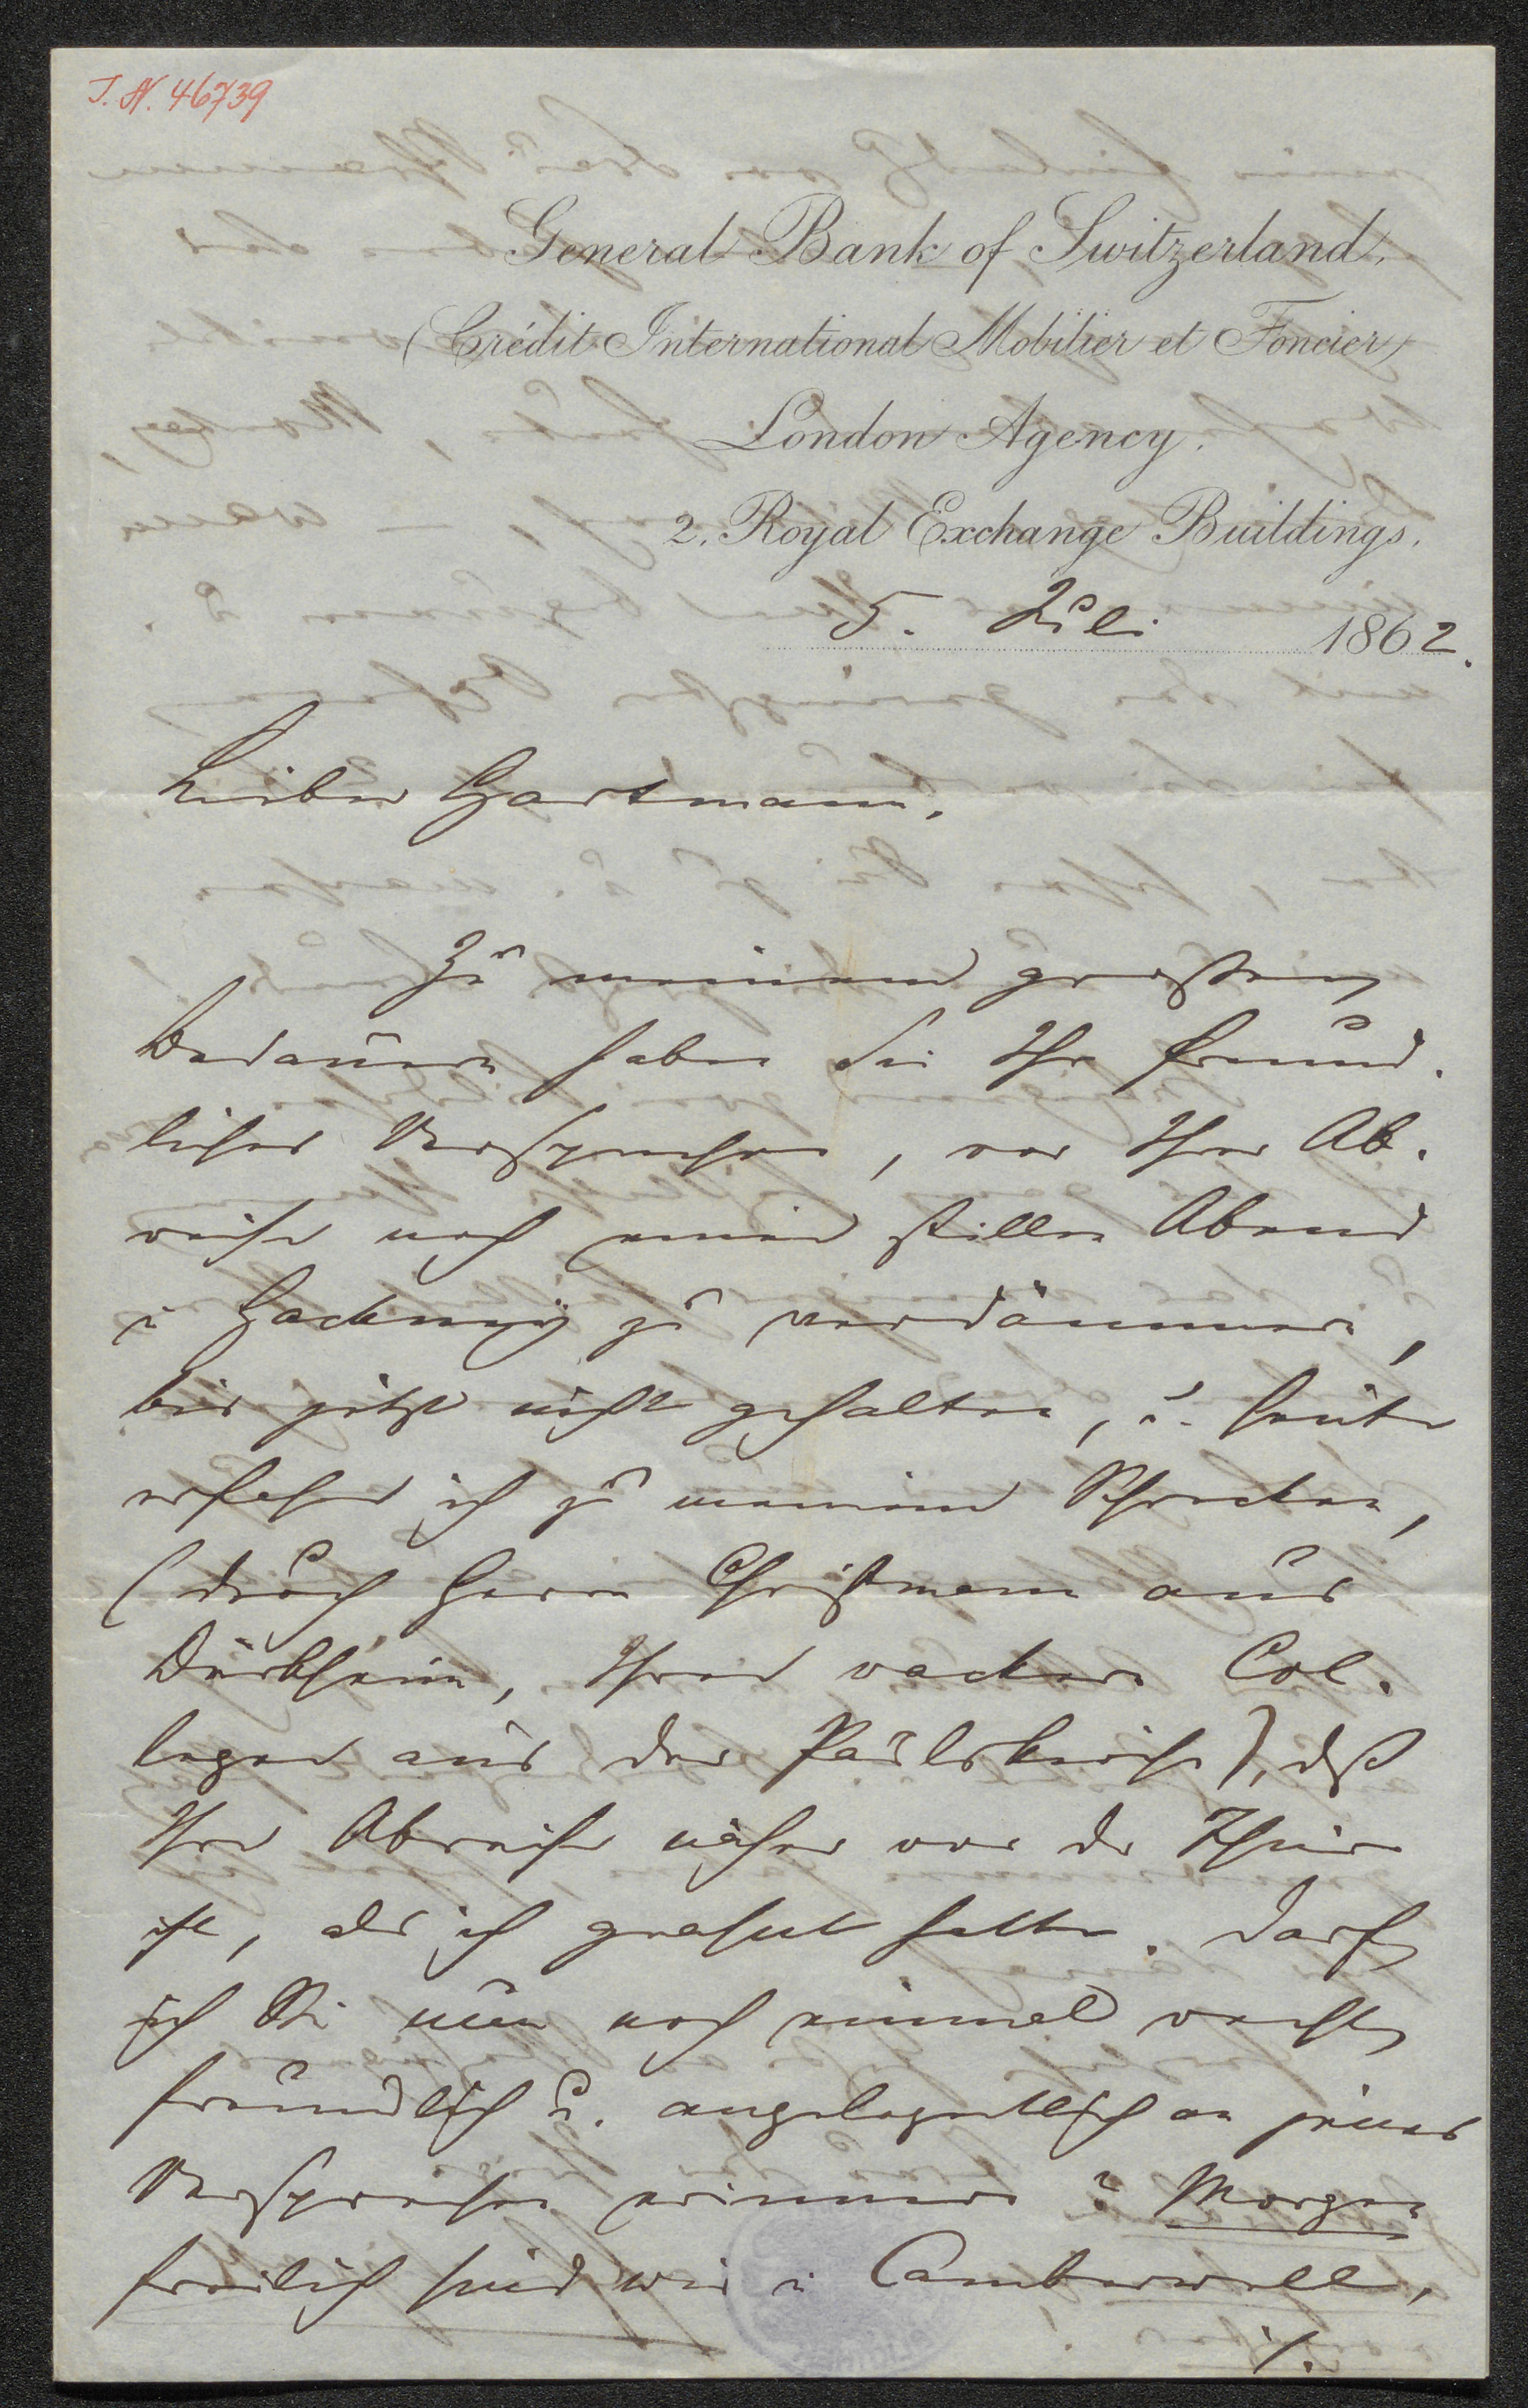 J. N. 46739
General Bank of Switzerland,
(Crédit International Mobilier et Foncier)
London Agency.
2. Royal Exchange Buildings.
5. Juli 1862.
Lieber Hartmann,
Zu meinem großen
Bedauern haben Sie Ihr freund-
liches Versprechen, vor Ihrer Ab-
reise noch einen stillen Abend
in Hackney zu verdämmern,
bis jetzt nicht gehalten, u. heute
erfahre ich zu meinem Schrecken,
(durch Herrn Christmann aus
Dürkheim, Ihren wackern Col-
legen aus der Paulskirche), daß
Ihre Abreise näher vor der Thüre
ist, als ich geahnt hatte. Darf
ich Sie nun noch einmal recht
freundlich u. angelegentlich an jenes
Versprechen erinnern? Morgen
freilich sind wir in Camberwell,
./.